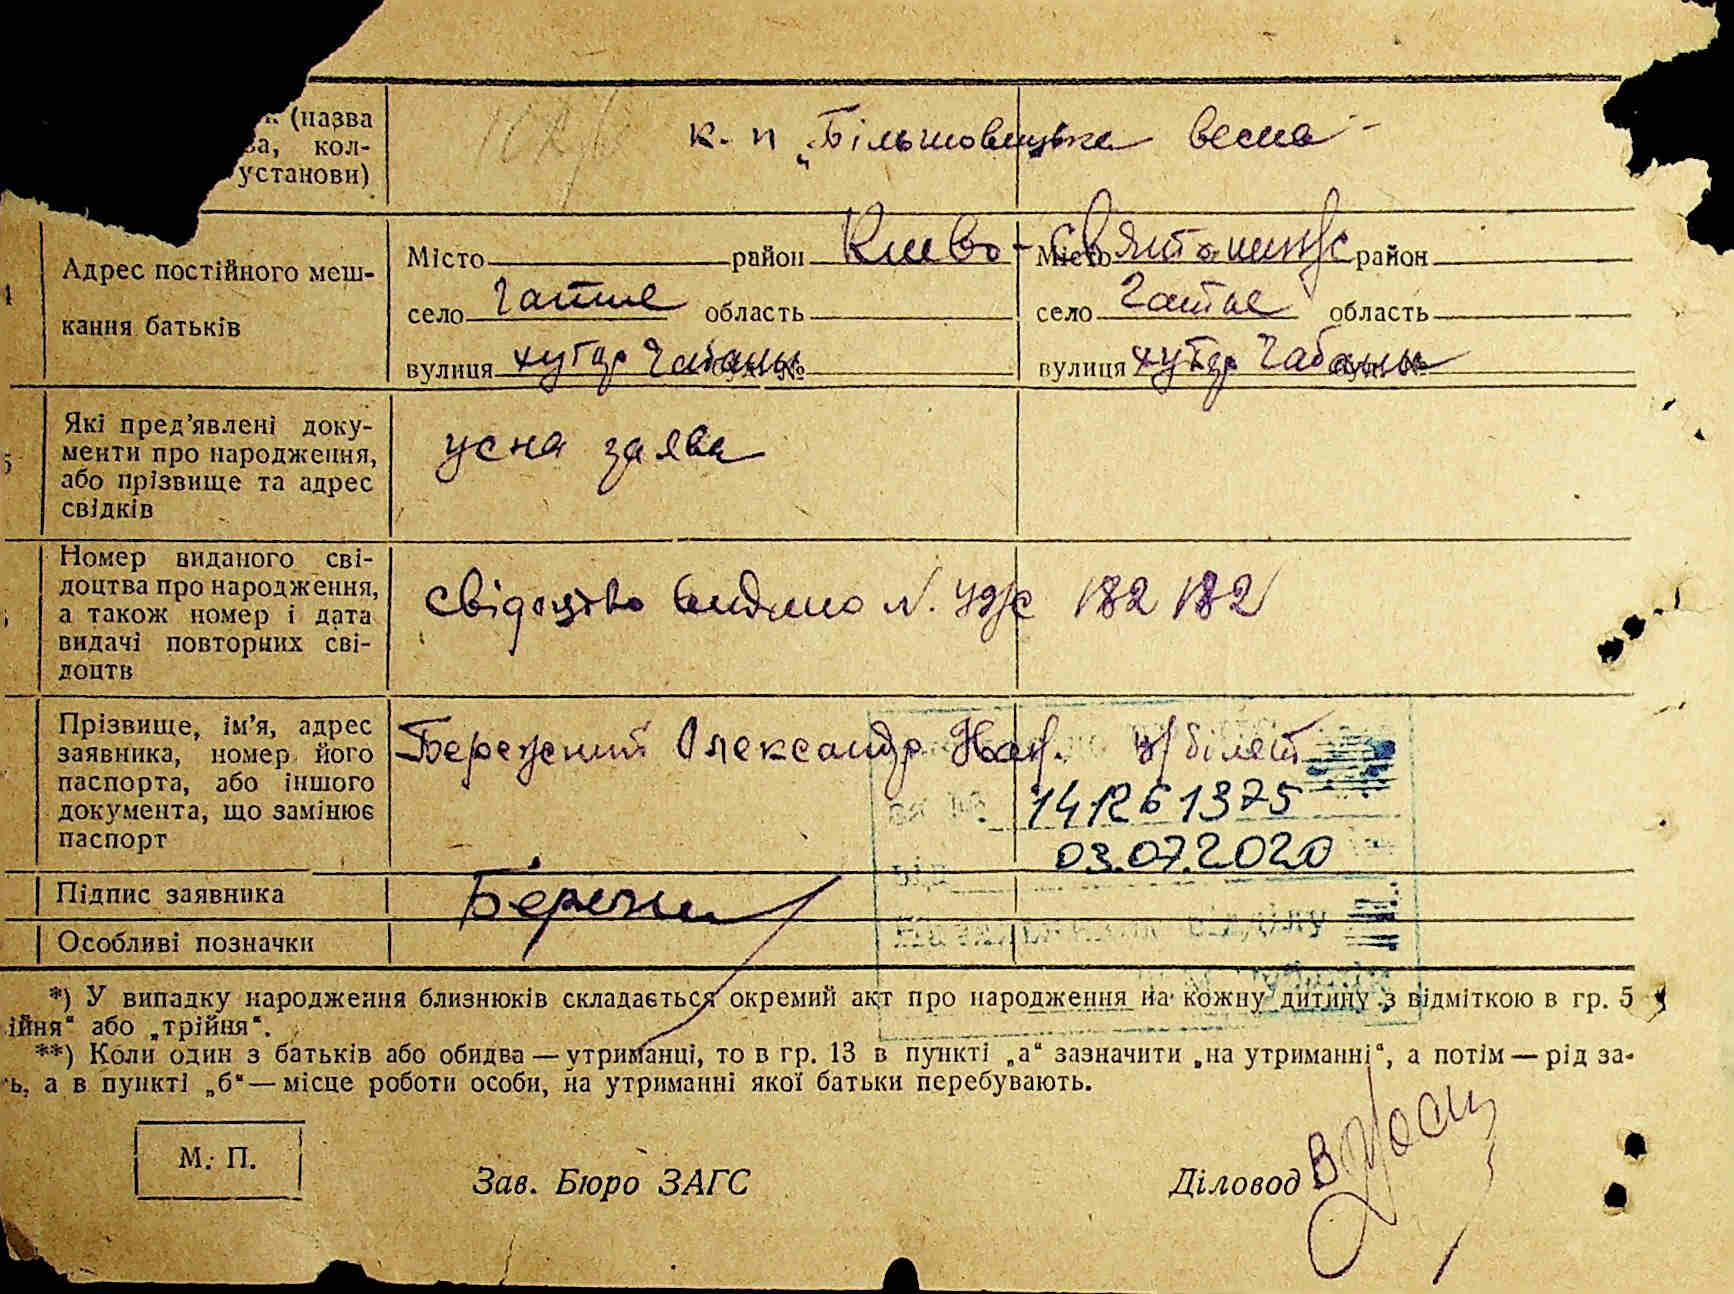 (назва
ва, кол-
установи)
к. п „Більшовицька весна"
Адрес постійного меш-
кання батьків
Місто район Києво-Святошинськ Місто район
село Гатне область село Гатне область
вулиця хутір Чабани № вулиця хутір Чабани
Які пред'явлені доку-
менти про народження,
або прізвище та адрес
свідків
усна заява
Номер виданого сві-
доцтва про народження,
а також номер і дата
видачі повторних сві-
доцтв
свідоцтво видано N. 182 182
Прізвище, ім'я, адрес
заявника, номер його
паспорта, або іншого
документа, що замінює
паспорт
Олександр білет
03.07.2020
Підпис заявника
Особливі позначки
*) У випадку народження близнюків складається окремий акт про народження на кожну дитину з відміткою в гр. 5
ійня" або „трійня".
**) Коли один з батьків або обидва — утриманці, то в гр. 13 в пункті „а" зазначити „на утриманні", а потім — рід за-
ь, а в пункті „б" — місце роботи особи, на утриманні якої батьки перебувають.
М. П.
Зав. Бюро ЗАГС Діловод